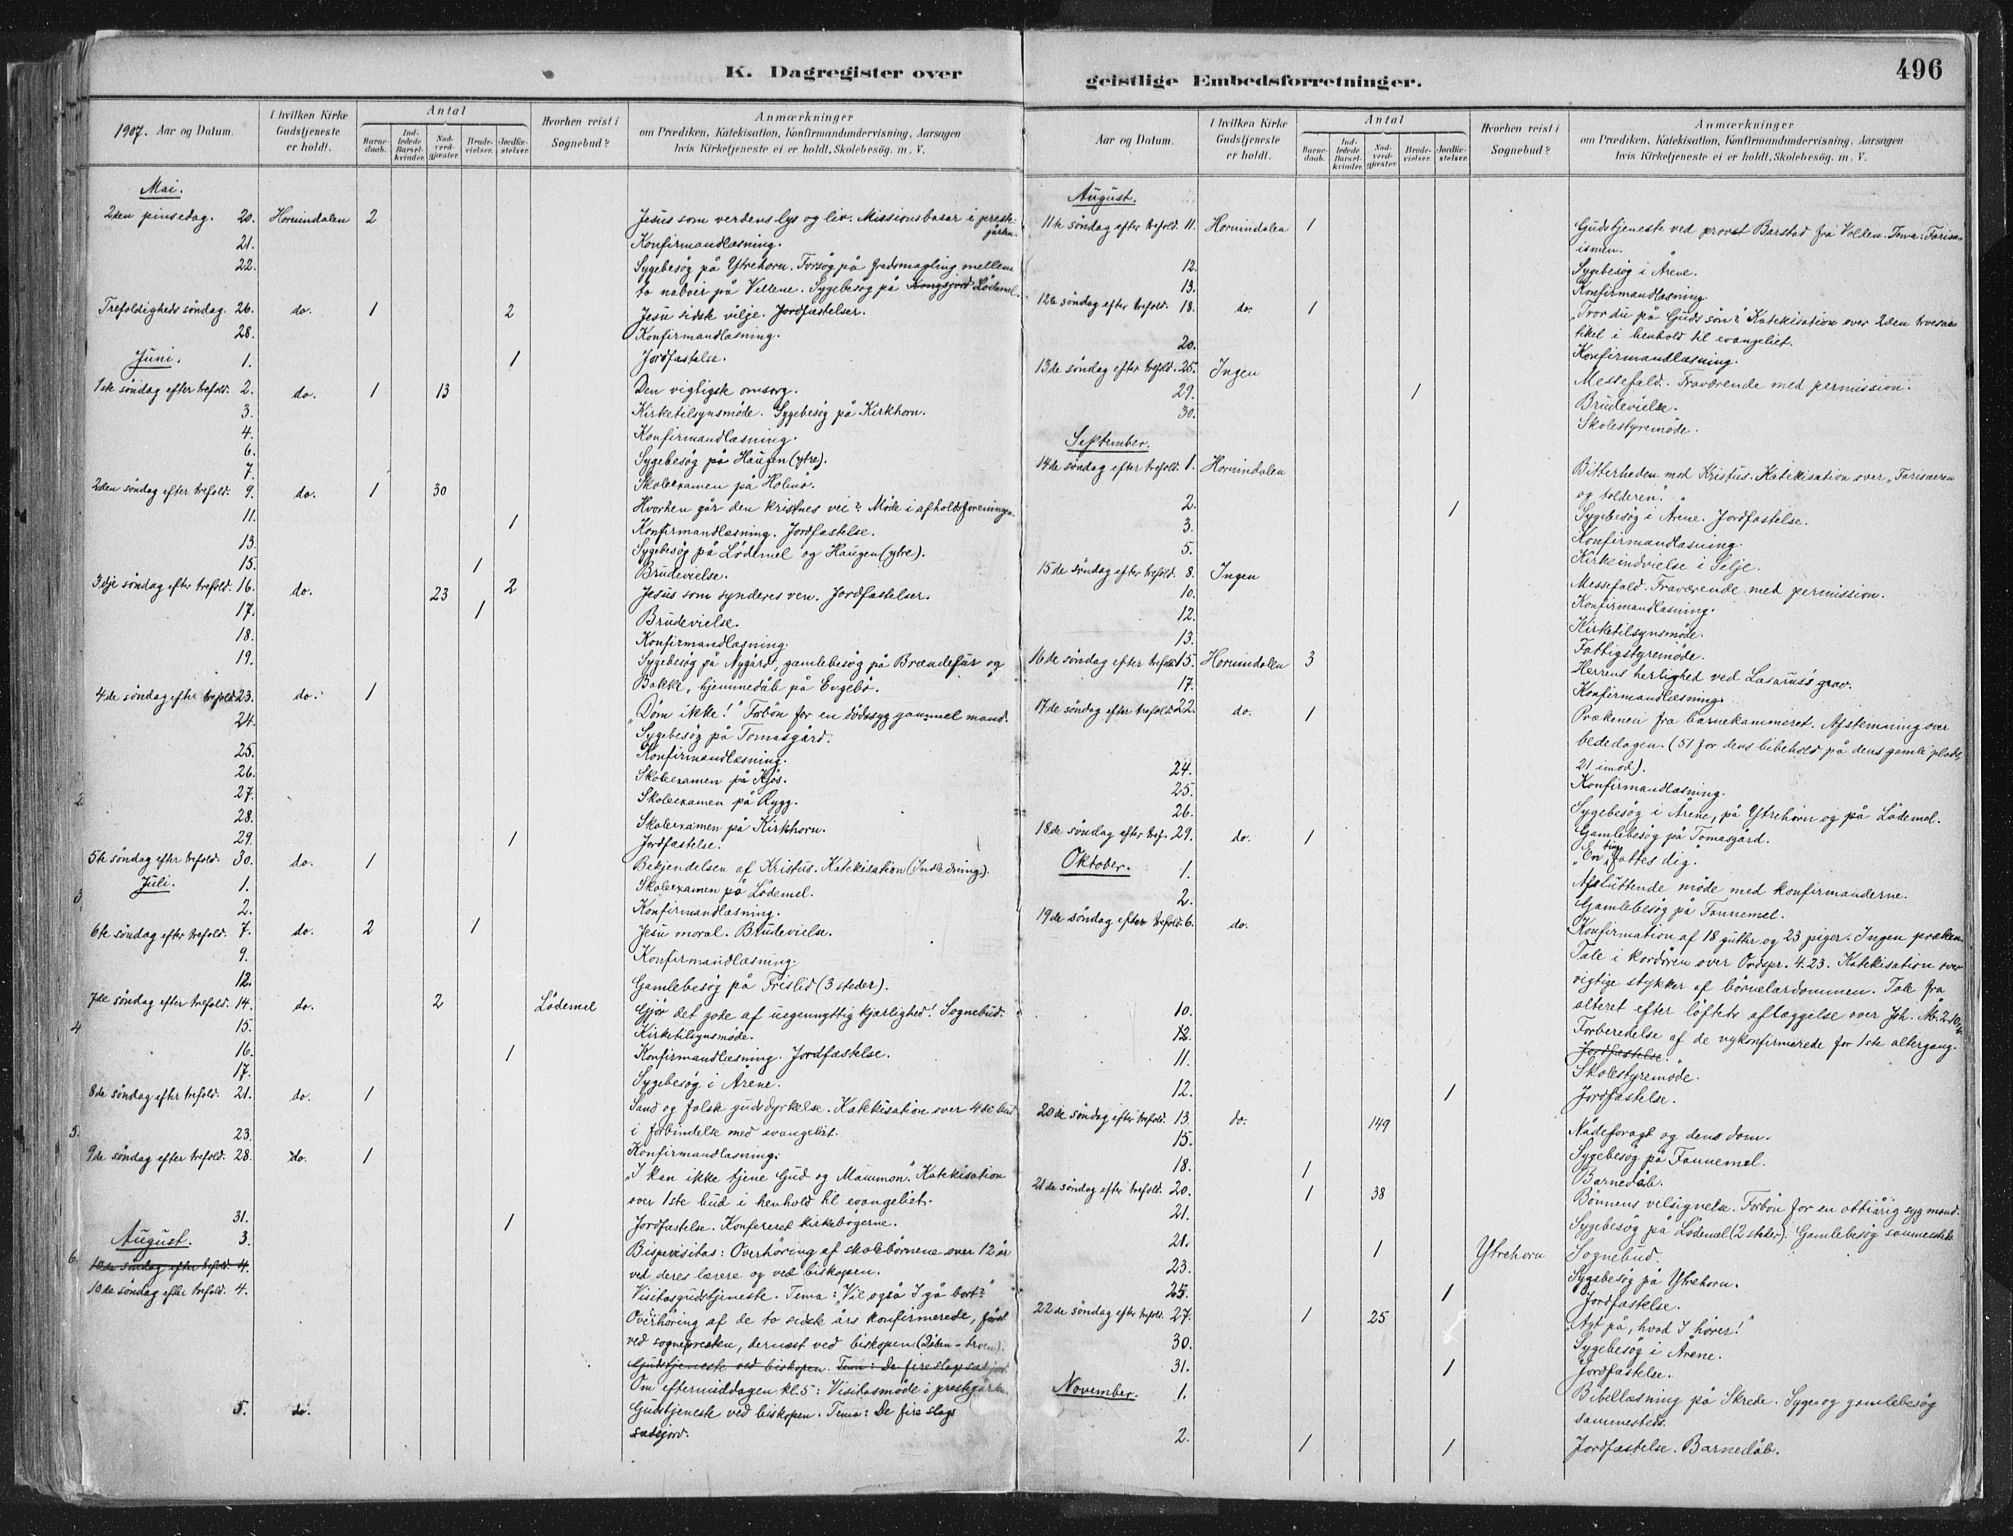 K. Dagregister over
1907. Aar og Datum.
I hvilken Kirke Gudstjeneste er holdt.
Antal
Barne-daab.
Ind-ledede Barsel-kvinder.
Nad-verd-gjester.
Brude-vielser.
Jordfæ-stelser.
Hvorhen reist i Sognebud?
Anmærkninger
om Prædiken, Katekisation, Konfirmandundervisning, Aarsagen
hvis Kirketjeneste ei er holdt, Skolebesög. m. V.
Mai.
2den pinsedag. 20. Hornindalen 2 Jesus som verdens lys og liv. Missionsbasar i preste-
gården.
21. Konfirmandlæsning.
22. Sygebesøg på Ytrehorn. Forsøg på fredsmægling mellem
to naboer på Villene. Sygebesøg på Kongsjord Lødemel.
Trefoldigheds søndag. 26. do. 1 2 Jesu sidste vilje. Jordfæstelser.
28. Konfirmandlæsning.
Juni. 1. 1 Jordfæstelse.
1ste søndag efter trefold. 2. do. 1 13 Den vigtigste omsorg.
3. Kirketilsynsmøde. Sygebesøg på Kirkhorn.
4. Konfirmandlæsning.
6. Sygebesøg på Haugen (ytre).
7. Skoleexamen på Holmø.
2den søndag efter trefold. 9. do. 1 30 Hvorhen går den kristnes vei? Møde i afholdsforeningen.
11. 1 Konfirmandlæsning. Jordfæstelse.
13. Sygebesøg på Lødemel og Haugen (ytre).
15. 1 Brudevielse.
3dje søndag efter trefold. 16. do. 23 2 Jesus som synderes ven. Jordfæstelser.
17. 1 Brudevielse.
18. Konfirmandlæsning.
19. Sygebesøg på Nygård, gamlebesøg på Brændefur og
Bakke, hjemmedåb på Engebø.
4de søndag efter trefold. 23. do. 1 "Døm ikke!" Forbøn for en dødssyg gammel mand.
24. Sygebesøg på Tomasgård.
25. Konfirmandlæsning.
26. Skoleexamen på Kjøs.
27. Skoleexamen på Rygg.
28. Skoleexamen på Kirkhorn.
29. 1 Jordfæstelse.
5te søndag efter trefold. 30. do. 1 Bekjendelsen af Kristus. Katekisation (Indledning).
Juli. 1. Skoleexamen på Lødemel.
2. Konfirmandlæsning.
6te søndag efter trefold. 7. do. 2 1 Jesu moral. Brudevielse.
9. Konfirmandlæsning.
12. Gamlebesøg på Frislid (3 steder).
7de søndag efter trefold. 14. do. 2 Lødemel Gjør det gode af uegennyttig kjærlighed! Sognebud.
15. Kirketilsynsmøde.
16. 1 Konfirmandlæsning. Jordfæstelse.
17. Sygebesøg i Årene.
8de søndag efter trefold. 21. do. 1 Sand og falsk gudsdyrkelse. Katekisation over 4de bud
i forbindelse med evangeliet.
23. Konfirmandlæsning.
9de søndag efter trefold. 28. do. 1 "I kan ikke tjene Gud og Mammon." Katekisation
over 1ste bud i henhold til evangeliet.
31. 1 Jordfæstelse. Konfereret kirkebøgerne.
August. 3. Bispevisitas: Overhøring af skolebørnene over 12 år
ved deres lærere og ved biskopen.
10de søndag efter trefold. 4.
10de søndag efter trefold. 4. Visitasgudstjeneste. Tema: "Vil også I gå bort?"
Overhøring af de to sidste års konfirmerede, først
ved sognepresten, dernæst ved biskopen (Dåben - troen).
Gudstjeneste ved biskopen. Tema: De fire slags sædejord.
Om eftermiddagen kl. 5: Visitasmøde i prestegården.
5. do. Gudstjeneste ved biskopen. Tema: De fire slags
sædejord.
geistlige Embedsforretninger.
496
Aar og Datum.
I hvilken Kirke Gudstjeneste er holdt.
Antal
Barne-daab.
Ind-ledede Barsel-kvinder.
Nad-verd-gjester.
Brude-vielser.
Jordfæ-stelser.
Hvorhen reist i Sognebud?
Anmærkninger
om Prædiken, Katekisation, Konfirmandundervisning, Aarsagen
hvis Kirketjeneste ei er holdt, Skolebesög. m. V.
August.
11te søndag efter trefold. 11. Hornindalen 1 Gudstjeneste ved provst Barstad fra Volden. Tema: Farisæ-
ismen.
12. Sygebesøg i Årene.
13. Konfirmandlæsning.
12te søndag efter trefold. 18. do. 1 "Tror du på Guds søn?" Katekisation over 2den trosar-
tikel i henhold til evangeliet.
20. Konfirmandlæsning.
13de søndag efter trefold. 25. Ingen Messefald. Fraværende med permission.
29. 1 Brudevielse.
30. Skolestyremøde.
September.
14de søndag efter trefold. 1. Hornindalen Bitterheden mod Kristus. Katekisation over "Farisæeren
og tolderen."
2. 1 Sygebesøg i Årene. Jordfæstelse.
3. Konfirmandlæsning.
5. Kirkeindvielse i Selje.
15de søndag efter trefold. 8. Ingen Messefald. Fraværende med permission.
10. Konfirmandlæsning.
12. Kirketilsynsmøde.
13. Fattigstyremøde.
16de søndag efter trefold. 15. Hornindalen 3 Herrens herlighed ved Lasarus's grav.
17. Konfirmandlæsning.
17de søndag efter trefold. 22. do. 1 Prækenen fra barnekammeret. Afstemning over
bededagen. (51 for dens bibehold på dens gamle plads,
21 imod).
24. Konfirmandlæsning.
25. Sygebesøg i Årene, på Ytrehorn og på Lødemel.
26. Gamlebesøg på Tomasgård.
18de søndag efter tref. 29. do. 1 "En ting fattes dig."
Oktober. 1. Afsluttende møde med konfirmanderne.
2. Gamlebesøg på Fannemel.
19de søndag efter trefold. 6. do. Konfirmation af 18 gutter og 23 piger. Ingen præken.
Tale i kordøren over Ordspr. 4.23. Katekisation over
vigtige stykker af børnelærdommen. Tale fra
alteret efter løftets aflæggelse over Joh. Åb. 2.10
10. Forberedelse af de nykonfirmerede for 1ste altergang.
12. Jordfæstelse.
11. Skolestyremøde.
12. 1 Jordfæstelse.
20de søndag efter trefold. 13. do. 149 Nådeforagt og dens dom.
15. Sygebesøg på Fannemel.
18. 1 Barnedåb.
21de søndag efter trefold. 20. 1 38 Bønnens velsignelse. Forbøn for en ottiårig syg mand.
21. Sygebesøg på Lødemel (2 steder). Gamlebesøg sammesteds.
21. 1 Ytrehorn Sognebud.
23. Sygebesøg på Ytrehorn.
25. 1 Jordfæstelse.
22de søndag efter trefold. 27. 1 25 "Agt på, hvad I hører!"
30. Sygebesøg i Årene.
31. 1 Jordfæstelse.
November. 1. Bibellæsning på Skrede. Syge- og gamlebesøg
sammesteds.
2. 1 1 Jordfæstelse. Barnedåb.